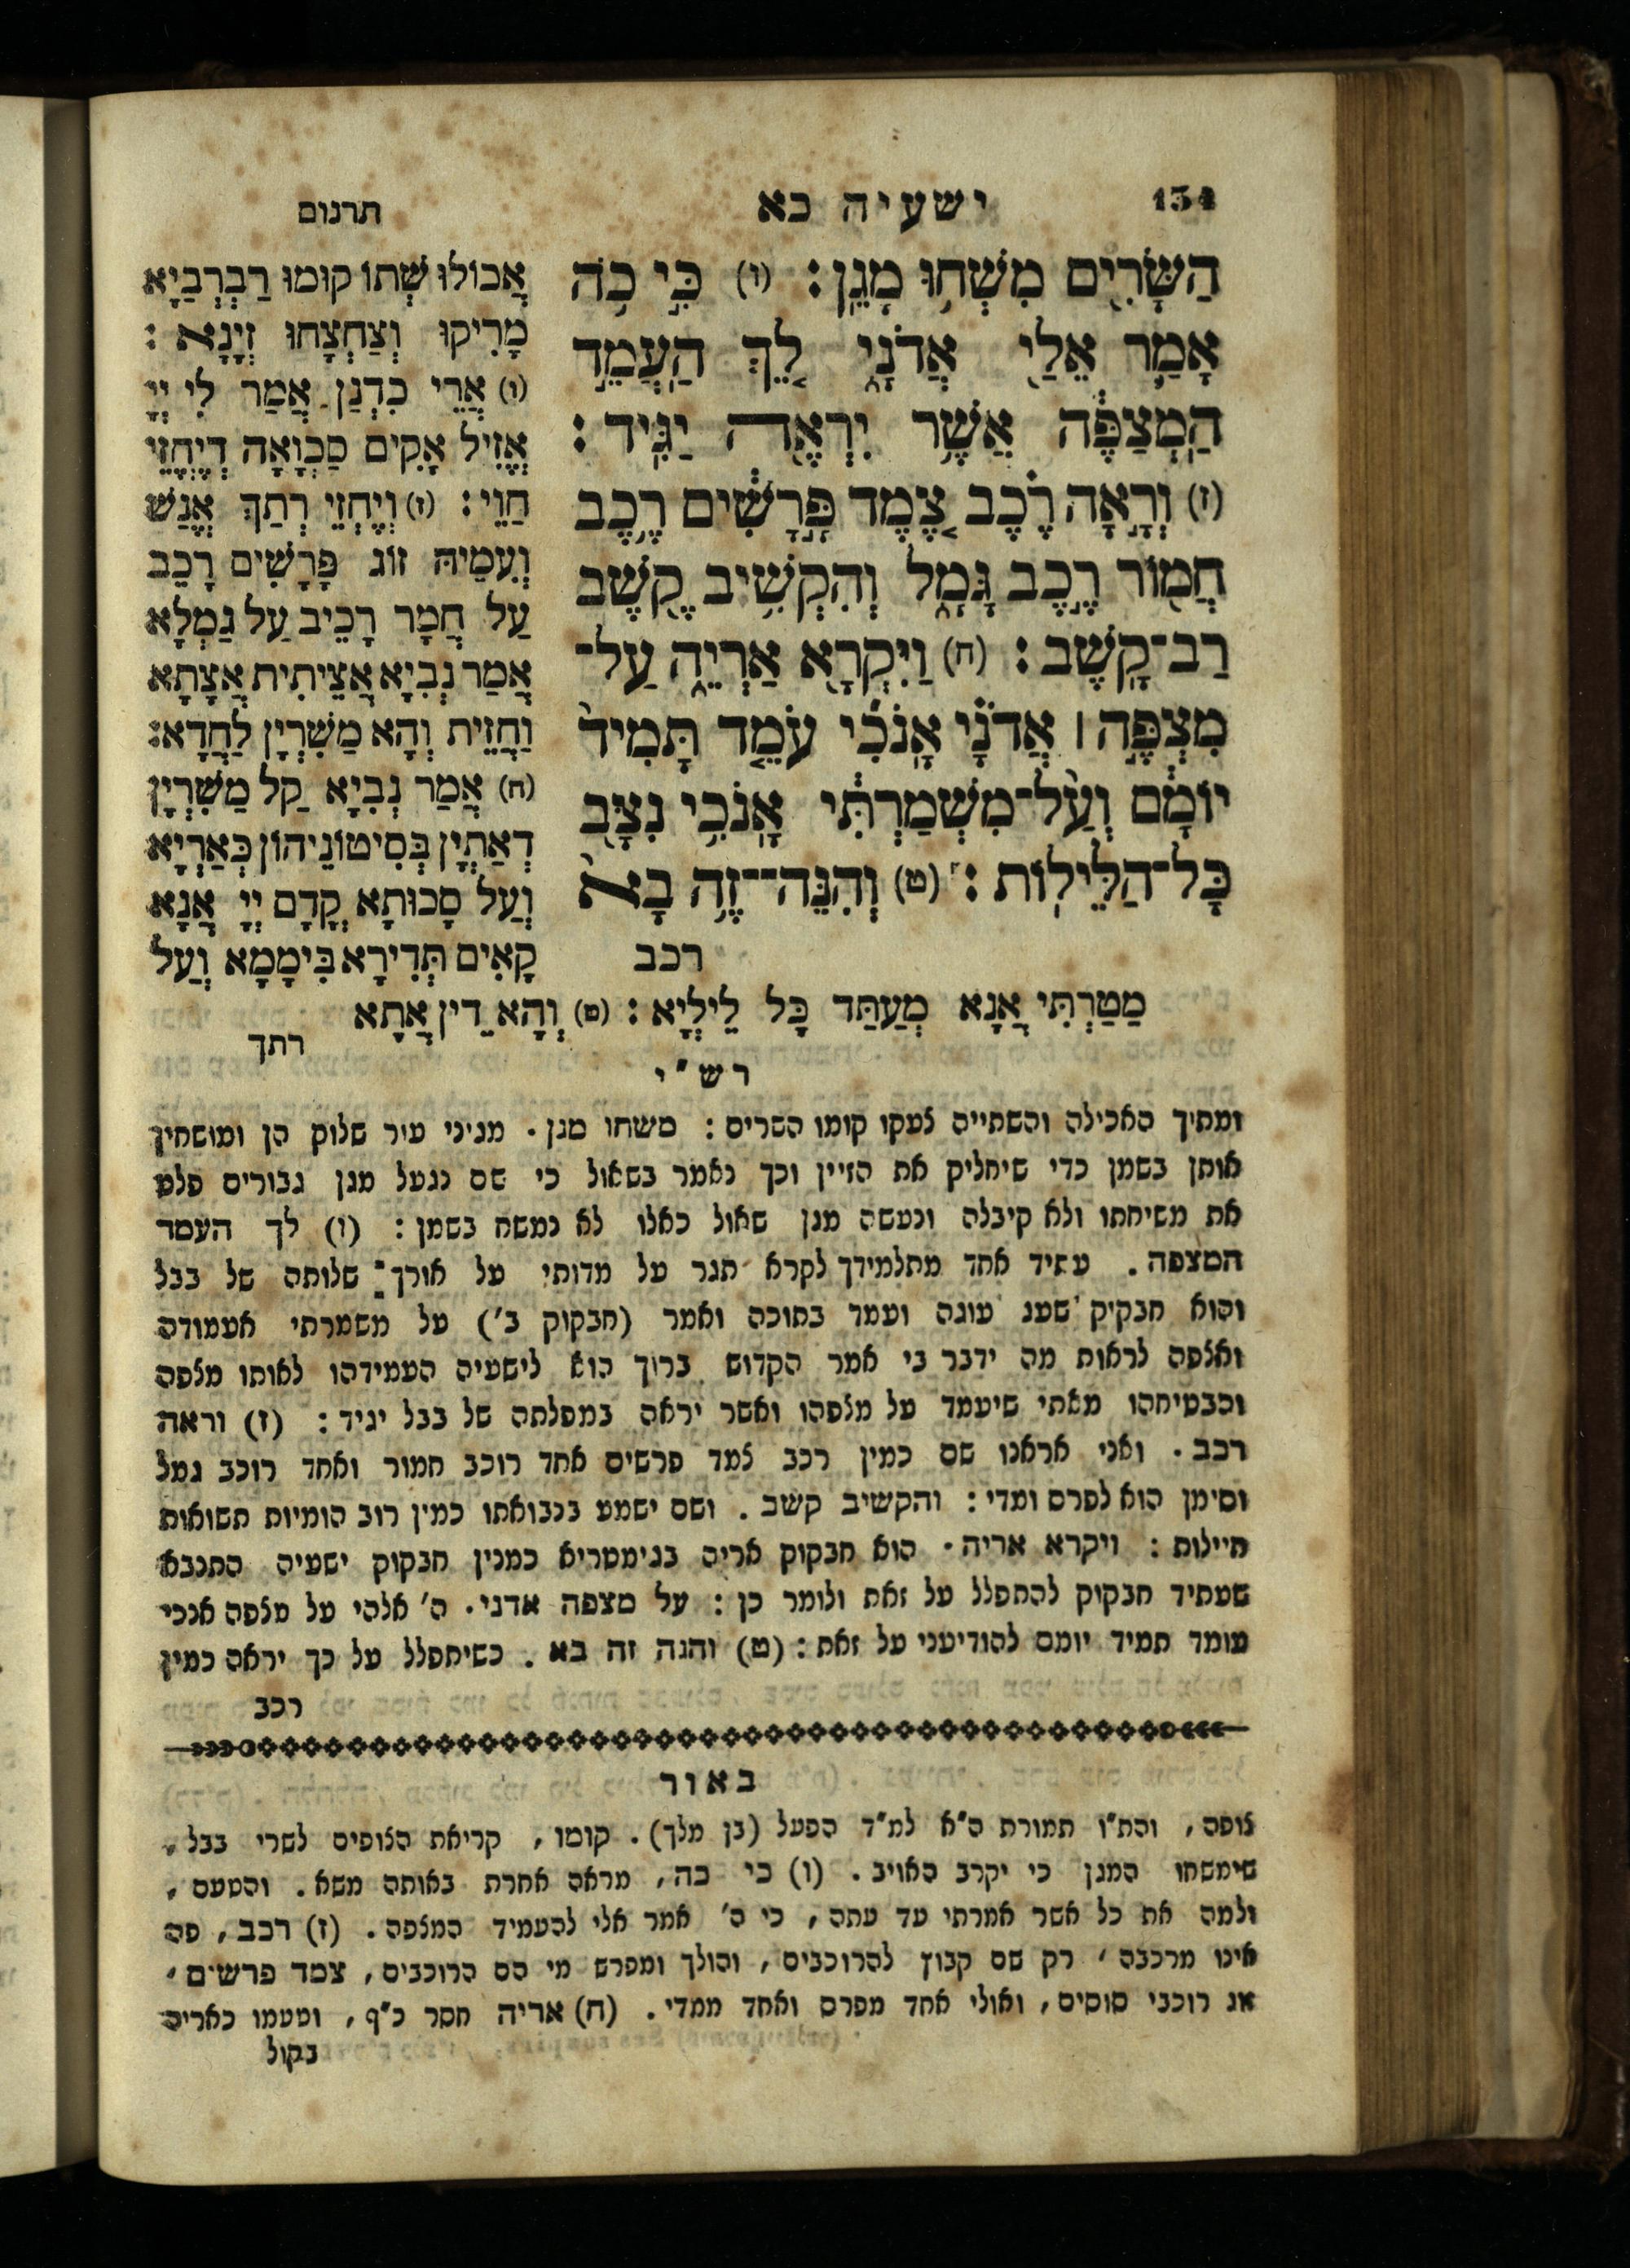 134
ישעיה כא
תרגום
הַשָּׂרִ֖ים מִשְׁח֥וּ מָגֵֽן׃ (ו) כִּ֣י כֹ֥ה
אָמַ֛ר אֵלַ֖י אֲדֹנָ֑י לֵ֚ךְ הַֽעֲמֵ֣ד
הַֽמְצַפֶּ֔ה אֲשֶׁ֥ר יִרְאֶ֖ה יַגִּֽיד׃
(ז) וְרָ֣אָה רֶ֗כֶב צֶ֚מֶד פָּֽרָשִׁ֔ים רֶ֥כֶב
חֲמ֖וֹר רֶ֣כֶב גָּמָ֑ל וְהִקְשִׁ֥יב קֶ֖שֶׁב
רַב־קָֽשֶׁב׃ (ח) וַיִּקְרָ֖א אַרְיֵ֑ה עַל־
מִצְפֶּ֣ה ׀ אֲדֹנָ֗י אָֽנֹכִ֞י עֹמֵ֤ד תָּמִיד֙
יוֹמָ֔ם וְעַל־מִ֨שְׁמַרְתִּ֔י אָֽנֹכִ֥י נִצָּ֖ב
כָּל־הַלֵּילֽוֹת׃ (ט) וְהִנֵּה־זֶ֥ה בָא֙
רכב
אֲכוֹלוּ שְׁתוֹ קוּמוּ רַבְרְבַיָא
מָרִיקוּ וְצַחְצָחוּ זְיָנָא׃
(ו) אֲרֵי כִדְנַן אֲמַר לִי יְיָ
אֱזִיל אָקִים סַכְוָאָה דְיֶחֱזֵי
חַוֵי׃ (ז) וְיֶחֱזֵי רְתַךְ אֱנַשׁ
וְעִמֵיהּ זוֹג פָּרָשִׁים רָכֵב
עַל חֲמָר רָכֵיב עַל גַמְלָא
אֲמַר נְבִיָא אֲצֵיתִית אֲצָתָא
וַחֲזֵית וְהָא מַשִׁרְיָן לַחֲדָא׃
(ח) אֲמַר נְבִיָא קַל מַשִׁרְיָן
דְאַתְיָן בְּסִיטוֹנֵיהוֹן כְּאַרְיָא
וְעַל סָכוּתָא קֳדָם יְיָ אֲנָא
קָאִים תְּדִירָא בִּימָמָא וְעַל
מַטַרְתִּי אֲנָא מְעַתַּד כָּל לֵילְיָא׃ (ט) וְהָא דֵין אֲתָא
רתך
רש״י
ומתוך האכילה והשתייה לעקו קומו השרים : משחו מגן . מגיני עיר שלוק הן ומושחין
אותן בשמן כדי שיחליק את הזיין וכך נאמר בשאול כי שם נגעל מגן גבורים פלט
את משיחתו ולא קיבלה ונעשה מגן שאול כאלו לא נמשח בשמן : (ו) לך העמד
המצפה . עתיד אחד מתלמידך לקרא תגר על מדותי על אורך שלותה של בבל
והוא חבקוק שעג עוגה ועמד בתוכה ואמר (חבקוק ב׳) על משמרתי אעמודה
ואצפה לראות מה ידבר בי אמר הקדוש ברוך הוא לישעיה העמידהו לאותו מצפה
והבטיחהו מאתי שיעמד על מצפהו ואשר יראה במפלתה של בבל יגיד : (ז) וראה
רכב . ואני אראנו שם כמין רכב צמד פרשים אחד רוכב חמור ואחד רוכב גמל
וסימן הוא לפרס ומדי : והקשיב קשב . ושם ישמע בנבואתו כמין רוב הומיות תשואות
חיילות : ויקרא אריה . הוא חבקוק אריה בגימטריא כמנין חבקוק ישעיה התנבא
שעתיד חבקוק להתפלל על זאת ולומר כן : על מצפה אדני . ה׳ אלהי על מצפה אנכי
עומד תמיד יומם להודיעני על זאת : (ט) והנה זה בא . כשיתפלל על כך יראה כמין
רכב
באור
צופה , והת״ו תמורת ה״א למ״ד הפעל (בן מלך) . קומו , קריאת הצופים לשרי בבל ,
שימשחו המגן כי יקרב האויב . (ו) כי כה , מראה אחרת באותה משא . והטעם ,
ולמה את כל אשר אמרתי עד עתה , כי ה׳ אמר אלי להעמיד המצפה . (ז) רכב , פה
אינו מרכבה , רק שם קבוץ להרוכבים , והולך ומפרש מי הם הרוכבים , צמד פרשים ,
זוג רוכבי סוסים , ואולי אחד מפרס ואחד ממדי . (ח) אריה חסר כ״ף , וטעמו כאריה
בקול